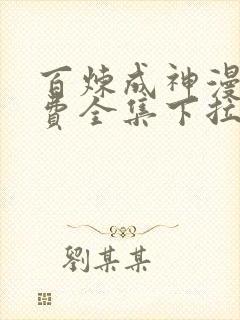 百炼成神漫
费全集下拉
劉某某